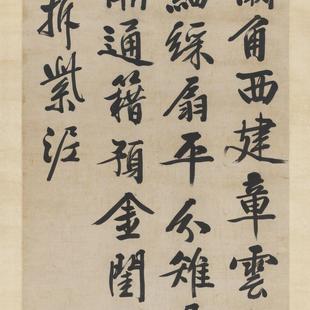 角西建章雲
細綵扇平分雉
通籍預金閨
拆紫泥